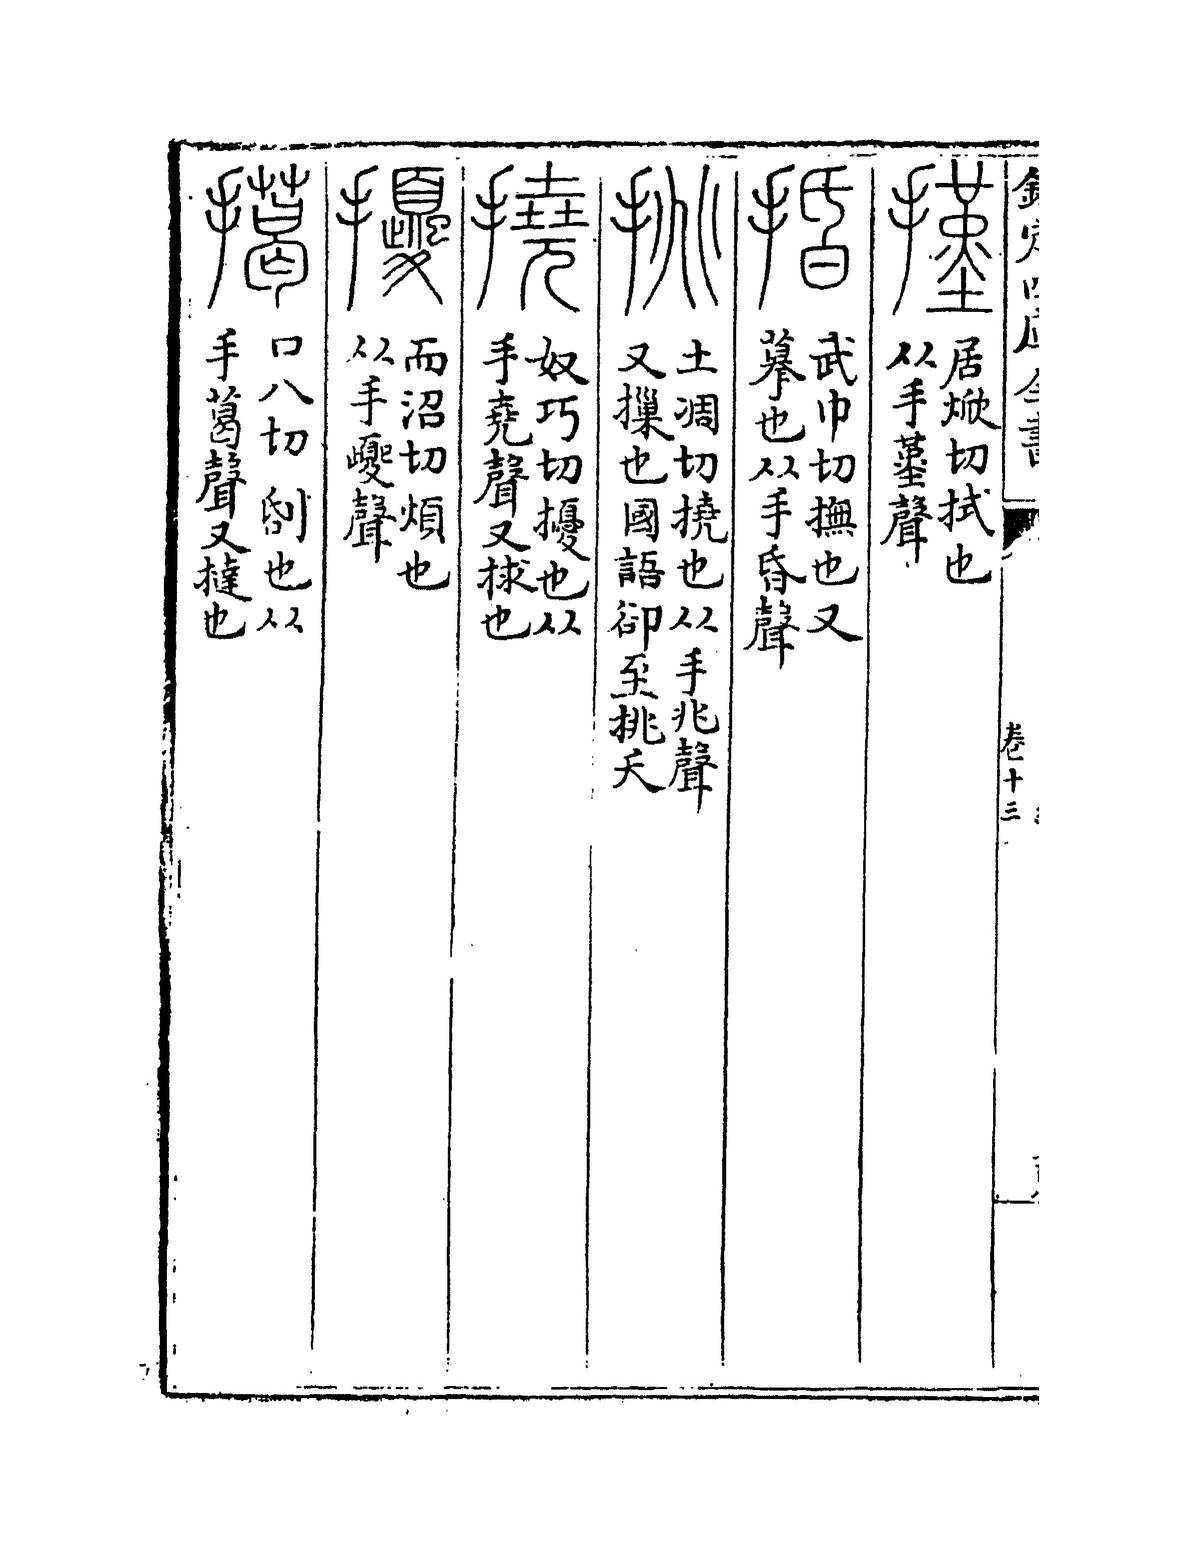 欽定四庫全書
卷十三
㨷
居焮切拭也
从手堇聲
捪
武巾切撫也又
摹也从手昏聲
挑
土凋切撓也从手兆聲
又摷也國語卻至挑天
撓
奴巧切擾也从
手堯聲又捄也
擾
而沼切煩也
从手夒聲
擖
口八切刮也从
手葛聲又撻也